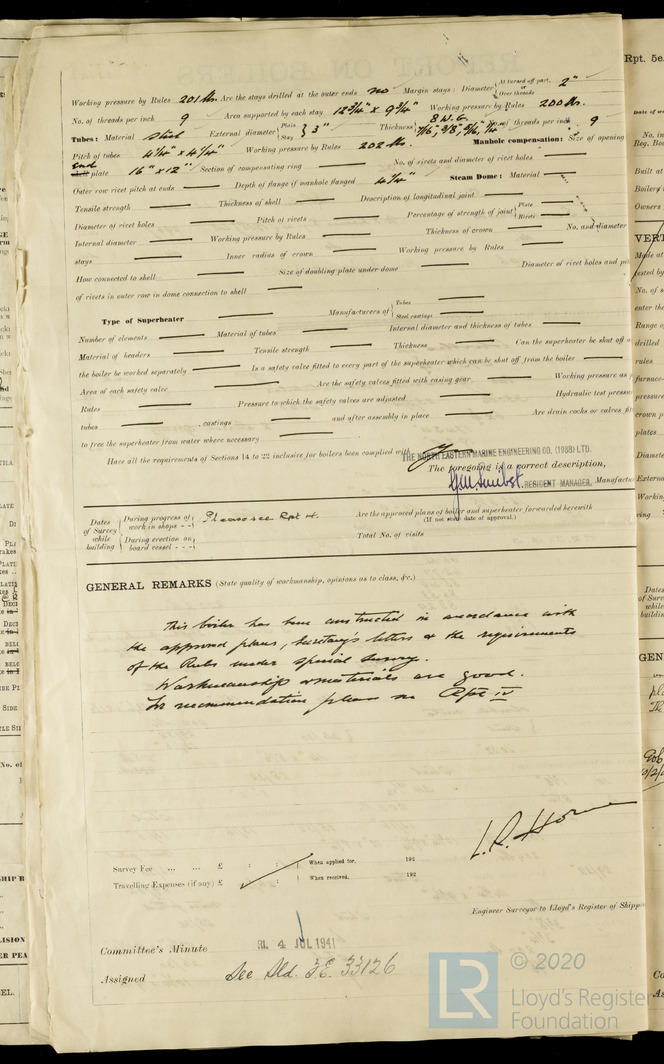 Rpt. 5e.
Working pressure by Rules 201 lbs. Are the stays drilled at the outer ends no Margin stays: Diameter { At turned off part, or Over threads 2"
No. of threads per inch 9 Area supported by each stay 12 3/4" x 9 3/4" Working pressure by Rules 200 lbs.
Tubes: Material steel External diameter { Plain Stay } 3" Thickness { 8 W.G. 7/16", 3/8", 5/16", 1/4" No. of threads per inch 9
Pitch of tubes 4 1/4" x 4 1/4" Working pressure by Rules 202 lbs. Manhole compensation: Size of opening
end shell plate 16" x 12" Section of compensating ring No. of rivets and diameter of rivet holes
Outer row rivet pitch at ends Depth of flange if manhole flanged 4 1/4" Steam Dome: Material
Tensile strength Thickness of shell Description of longitudinal joint
Diameter of rivet holes Pitch of rivets Percentage of strength of joint { Plate Rivets
Internal diameter Working pressure by Rules Thickness of crown No. and diameter
stays Inner radius of crown Working pressure by Rules
How connected to shell Size of doubling plate under dome Diameter of rivet holes and
of rivets in outer row in dome connection to shell
Type of Superheater Manufacturers of { Tubes Steel castings
Number of elements Material of tubes Internal diameter and thickness of tubes
Material of headers Tensile strength Thickness Can the superheater be shut off
the boiler be worked separately Is a safety valve fitted to every part of the superheater which can be shut off from the boiler
Area of each safety valve Are the safety valves fitted with easing gear Working pressure as
Rules Pressure to which the safety valves are adjusted Hydraulic test pressure
tubes , castings and after assembly in place Are drain cocks or valves
to free the superheater from water where necessary
Have all the requirements of Sections 14 to 22 inclusive for boilers been complied with Yes
THE NORTH EASTERN MARINE ENGINEERING CO. (1938) LTD.
The foregoing is a correct description,
RESIDENT MANAGER. Manufacturer
Dates of Survey while building { During progress of work in shops - - Please see Rpt 4. Are the approved plans of boiler and superheater forwarded herewith (If not state date of approval.)
During erection on board vessel - - - Total No. of visits
GENERAL REMARKS (State quality of workmanship, opinions as to class, &c.)
This boiler has been constructed in accordance with
the approved plans, Secretary's letters & the requirements
of the Rules under special survey.
Workmanship & materials are good.
For recommendation please see Rpt IV
L. R. Horne
Survey Fee ... ... £ : : When applied for, 192
Travelling Expenses (if any) £ : : When received, 192
Engineer Surveyor to Lloyd's Register of Shipping
Committee's Minute 4 JUL 1941
Assigned See Sld. F.E. 33126
LR © 2020
Lloyd's Register
Foundation